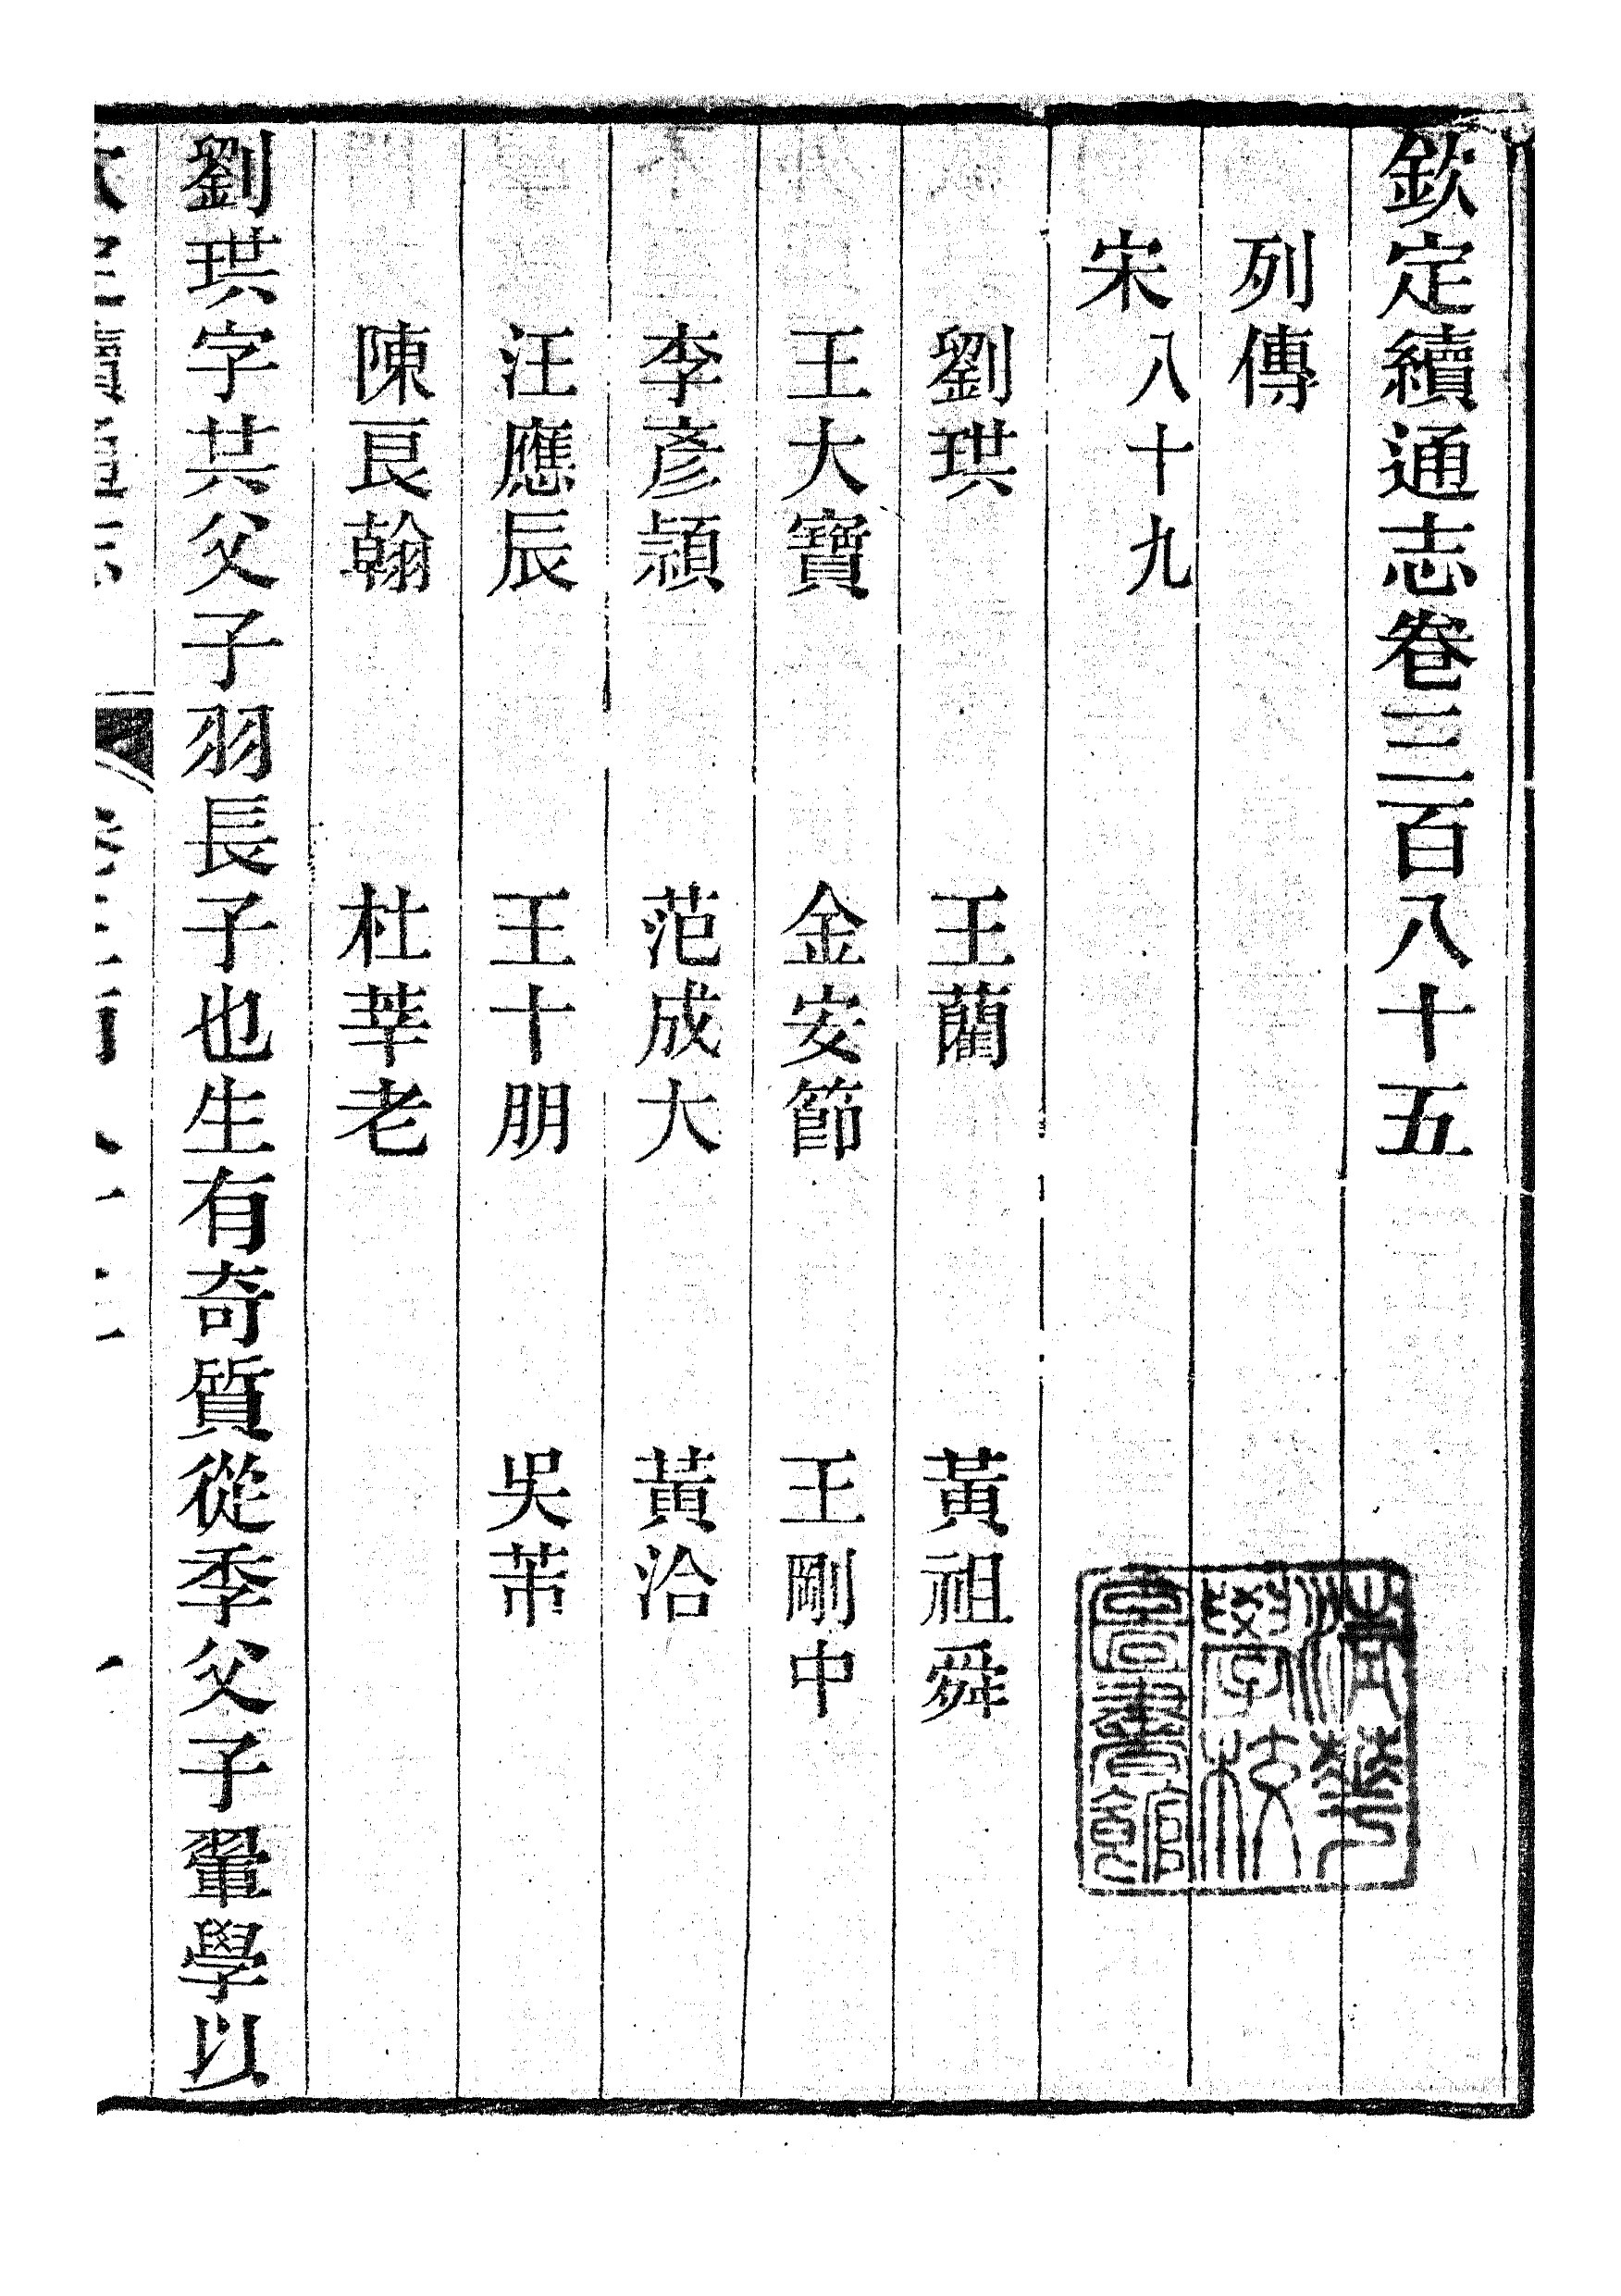 欽定續通志卷三百八十五
列傳
宋八十九
劉珙 王藺 黃祖舜
王大寶 金安節 王剛中
李彥穎 范成大 黃洽
汪應辰 王十朋 吳芾
陳良翰 杜莘老
劉珙字共父子羽長子也生有奇質從季父子翬學以
清華
學校
圖書館